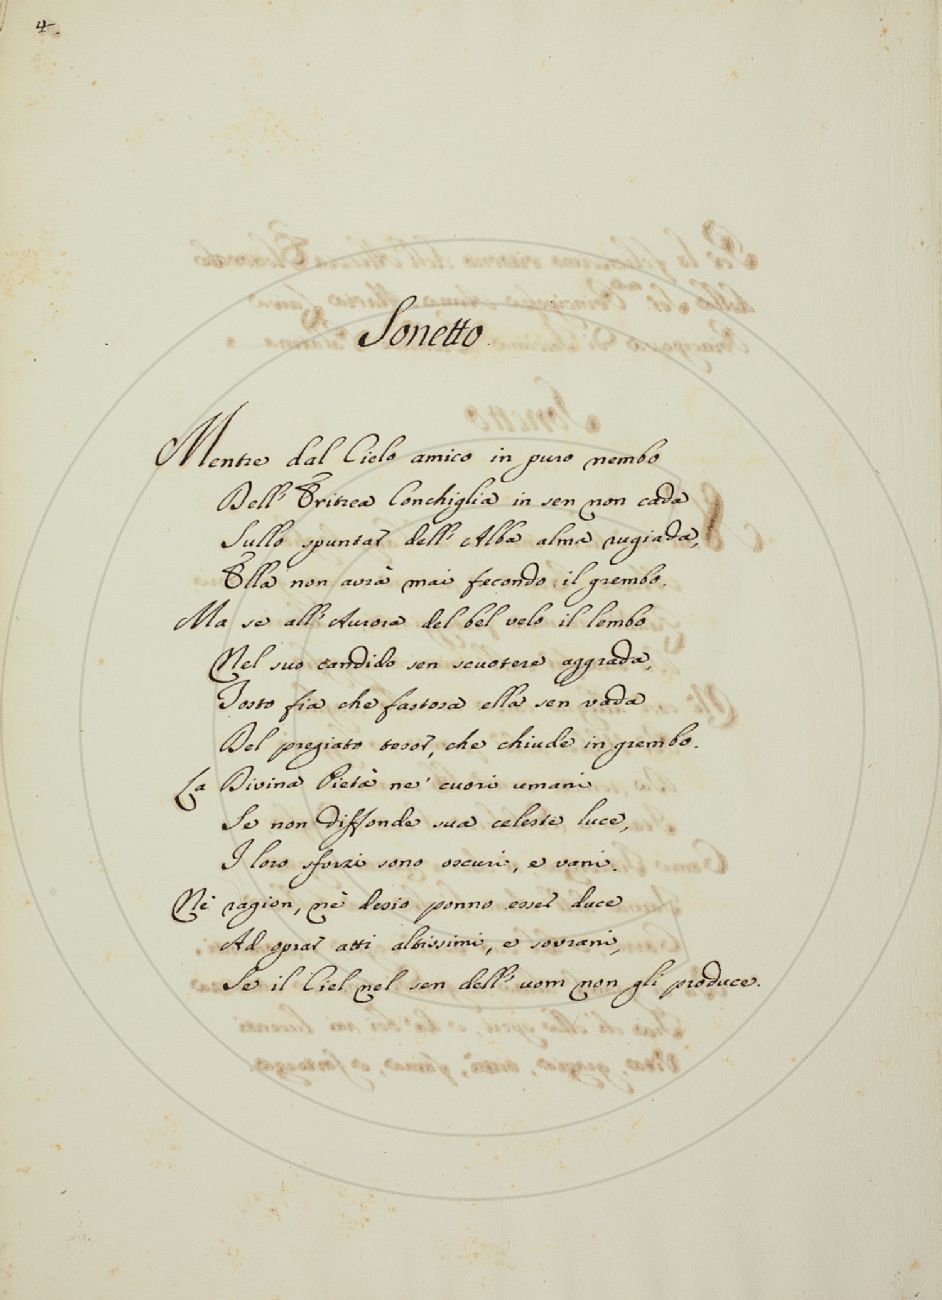 4
Sonetto
Mentre dal Cielo amico in puro nembo
Dell' Eritrea Conchiglia in sen non cada
Sullo spuntar dell' Alba alma rugiada,
Ella non avrà mai fecondo il grembo.
Ma se all' Aurora del bel velo il lembo
Nel suo candido sen scuotere aggrada,
Tosto fia che fastosa ella sen vada
Del pregiato tesor, che chiude in grembo.
La Divina Pietà ne' cuori umani
Se non diffonde sua celeste luce,
I loro sforzi sono oscuri, e vani.
Nè ragion, nè desio ponno esser duce
Ad oprar atti altissimi, e sovrani,
Se il Ciel nel sen dell' uom non gli produce.